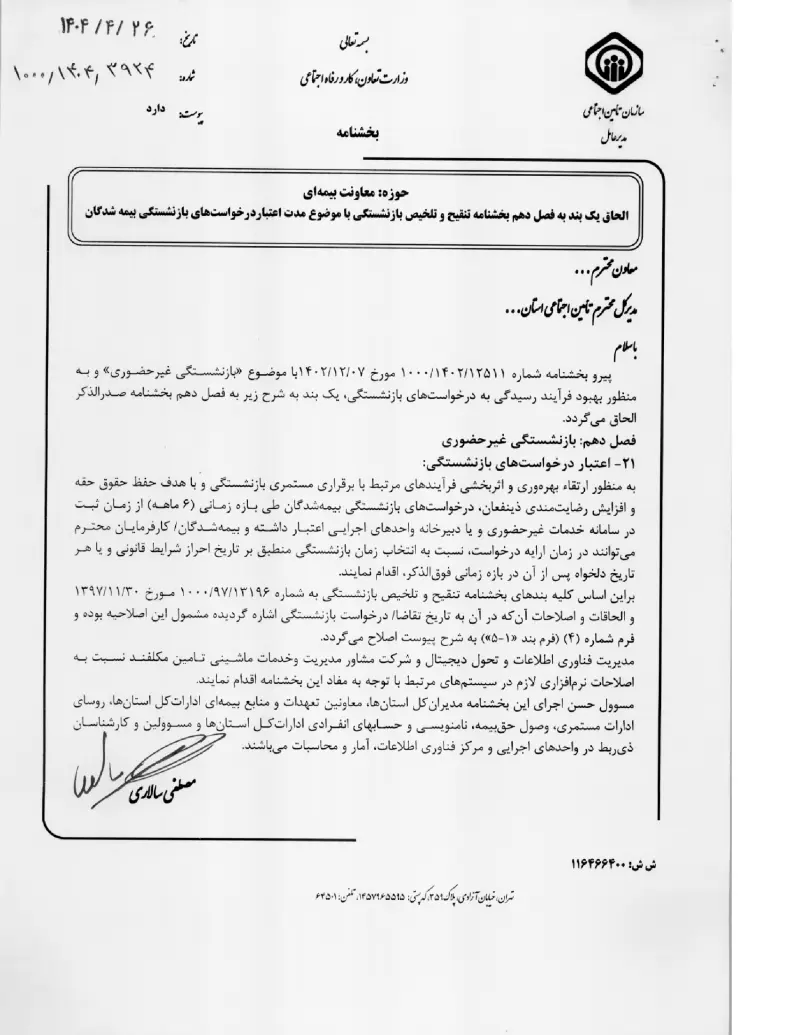 بسمه تعالی
وزارت تعاون، کار و رفاه اجتماعی
بخشنامه
سازمان تأمین اجتماعی
مدیرعامل
تاریخ: ۱۴۰۴/۴/۲۶
شماره: ۱۰۰۰/۱۴۰۴/۳۹۲۴
پیوست: دارد
حوزه: معاونت بیمه‌ای
الحاق یک بند به فصل دهم بخشنامه تنقیح و تلخیص بازنشستگی با موضوع مدت اعتبار درخواست‌های بازنشستگی بیمه شدگان
معاون محترم...
مدیرکل محترم تأمین اجتماعی استان...
باسلام
پیرو بخشنامه شماره ۱۰۰۰/۱۴۰۲/۱۲۵۱۱ مورخ ۱۴۰۲/۱۲/۰۷ با موضوع «بازنشستگی غیرحضوری» و به
منظور بهبود فرآیند رسیدگی به درخواست‌های بازنشستگی، یک بند به شرح زیر به فصل دهم بخشنامه صدرالذکر
الحاق می‌گردد.
فصل دهم: بازنشستگی غیرحضوری
۲۱- اعتبار درخواست‌های بازنشستگی:
به منظور ارتقاء بهره‌وری و اثربخشی فرآیندهای مرتبط با برقراری مستمری بازنشستگی و با هدف حفظ حقوق حقه
و افزایش رضایت‌مندی ذینفعان، درخواست‌های بازنشستگی بیمه‌شدگان طی بازه زمانی (۶ ماهه) از زمان ثبت
در سامانه خدمات غیرحضوری و یا دبیرخانه واحدهای اجرایی اعتبار داشته و بیمه‌شدگان/ کارفرمایان محترم
می‌توانند در زمان ارایه درخواست، نسبت به انتخاب زمان بازنشستگی منطبق بر تاریخ احراز شرایط قانونی و یا هر
تاریخ دلخواه پس از آن در بازه زمانی فوق‌الذکر، اقدام نمایند.
براین اساس کلیه بندهای بخشنامه تنقیح و تلخیص بازنشستگی به شماره ۱۰۰۰/۹۷/۱۳۱۹۶ مورخ ۱۳۹۷/۱۱/۳۰
و الحاقات و اصلاحات آن‌که در آن به تاریخ تقاضا/ درخواست بازنشستگی اشاره گردیده مشمول این اصلاحیه بوده و
فرم شماره (۴) (فرم بند «۱-۵») به شرح پیوست اصلاح می‌گردد.
مدیریت فناوری اطلاعات و تحول دیجیتال و شرکت مشاور مدیریت وخدمات ماشینی تامین مکلفند نسبت به
اصلاحات نرم‌افزاری لازم در سیستم‌های مرتبط با توجه به مفاد این بخشنامه اقدام نمایند.
مسوول حسن اجرای این بخشنامه مدیران‌کل استان‌ها، معاونین تعهدات و منابع بیمه‌ای ادارات‌کل استان‌ها، روسای
ادارات مستمری، وصول حق‌بیمه، نامنویسی و حسابهای انفرادی ادارات‌کل استان‌ها و مسوولین و کارشناسان
ذی‌ربط در واحدهای اجرایی و مرکز فناوری اطلاعات، آمار و محاسبات می‌باشند.
مصطفی سالاری
ش ش: ۱۱۶۴۶۶۴۰۰
تهران، خیابان آزادی، پلاک ۳۵۹، کد پستی: ۱۴۵۷۹۶۵۵۹۵، تلفن: ۶۴۵۰۱